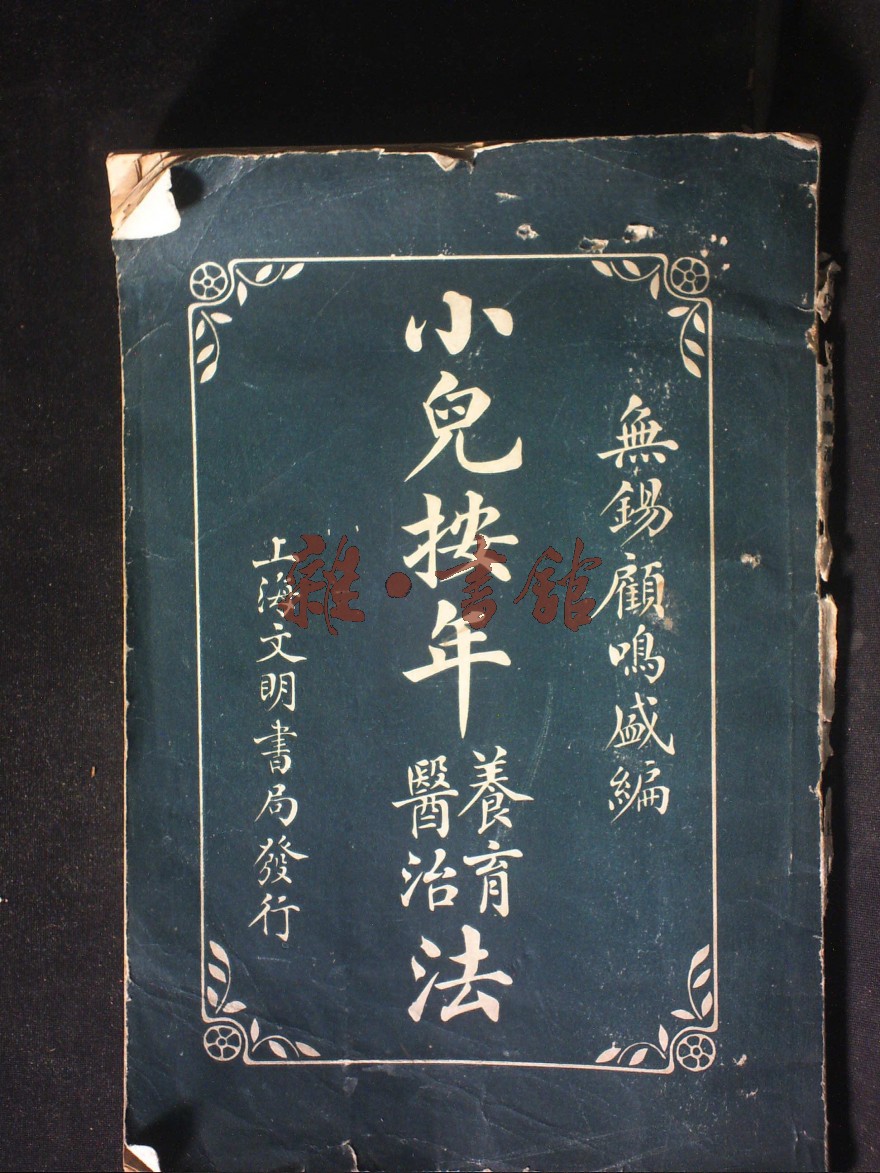 無錫顧鳴盛編
小兒按年養育醫治法
上海文明書局發行
雜·書館